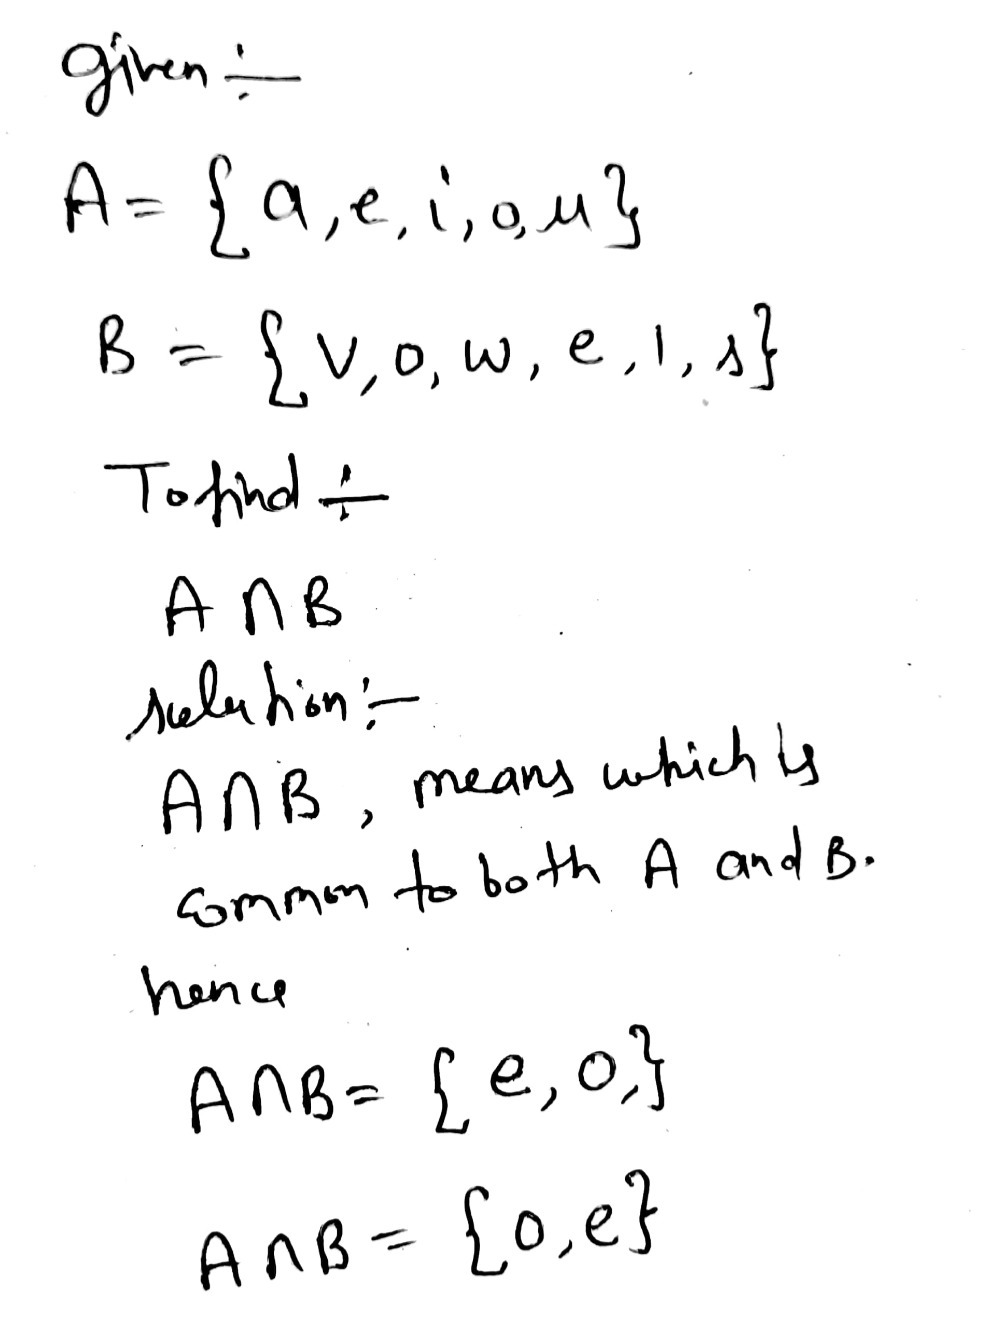 given :-
A = {a, e, i, o, u}
B = {v, o, w, e, l, s}
To find :-
A ∩ B
solution :-
A ∩ B, means which is
common to both A and B.
hence
A ∩ B = {e, o,}
A ∩ B = {o, e}